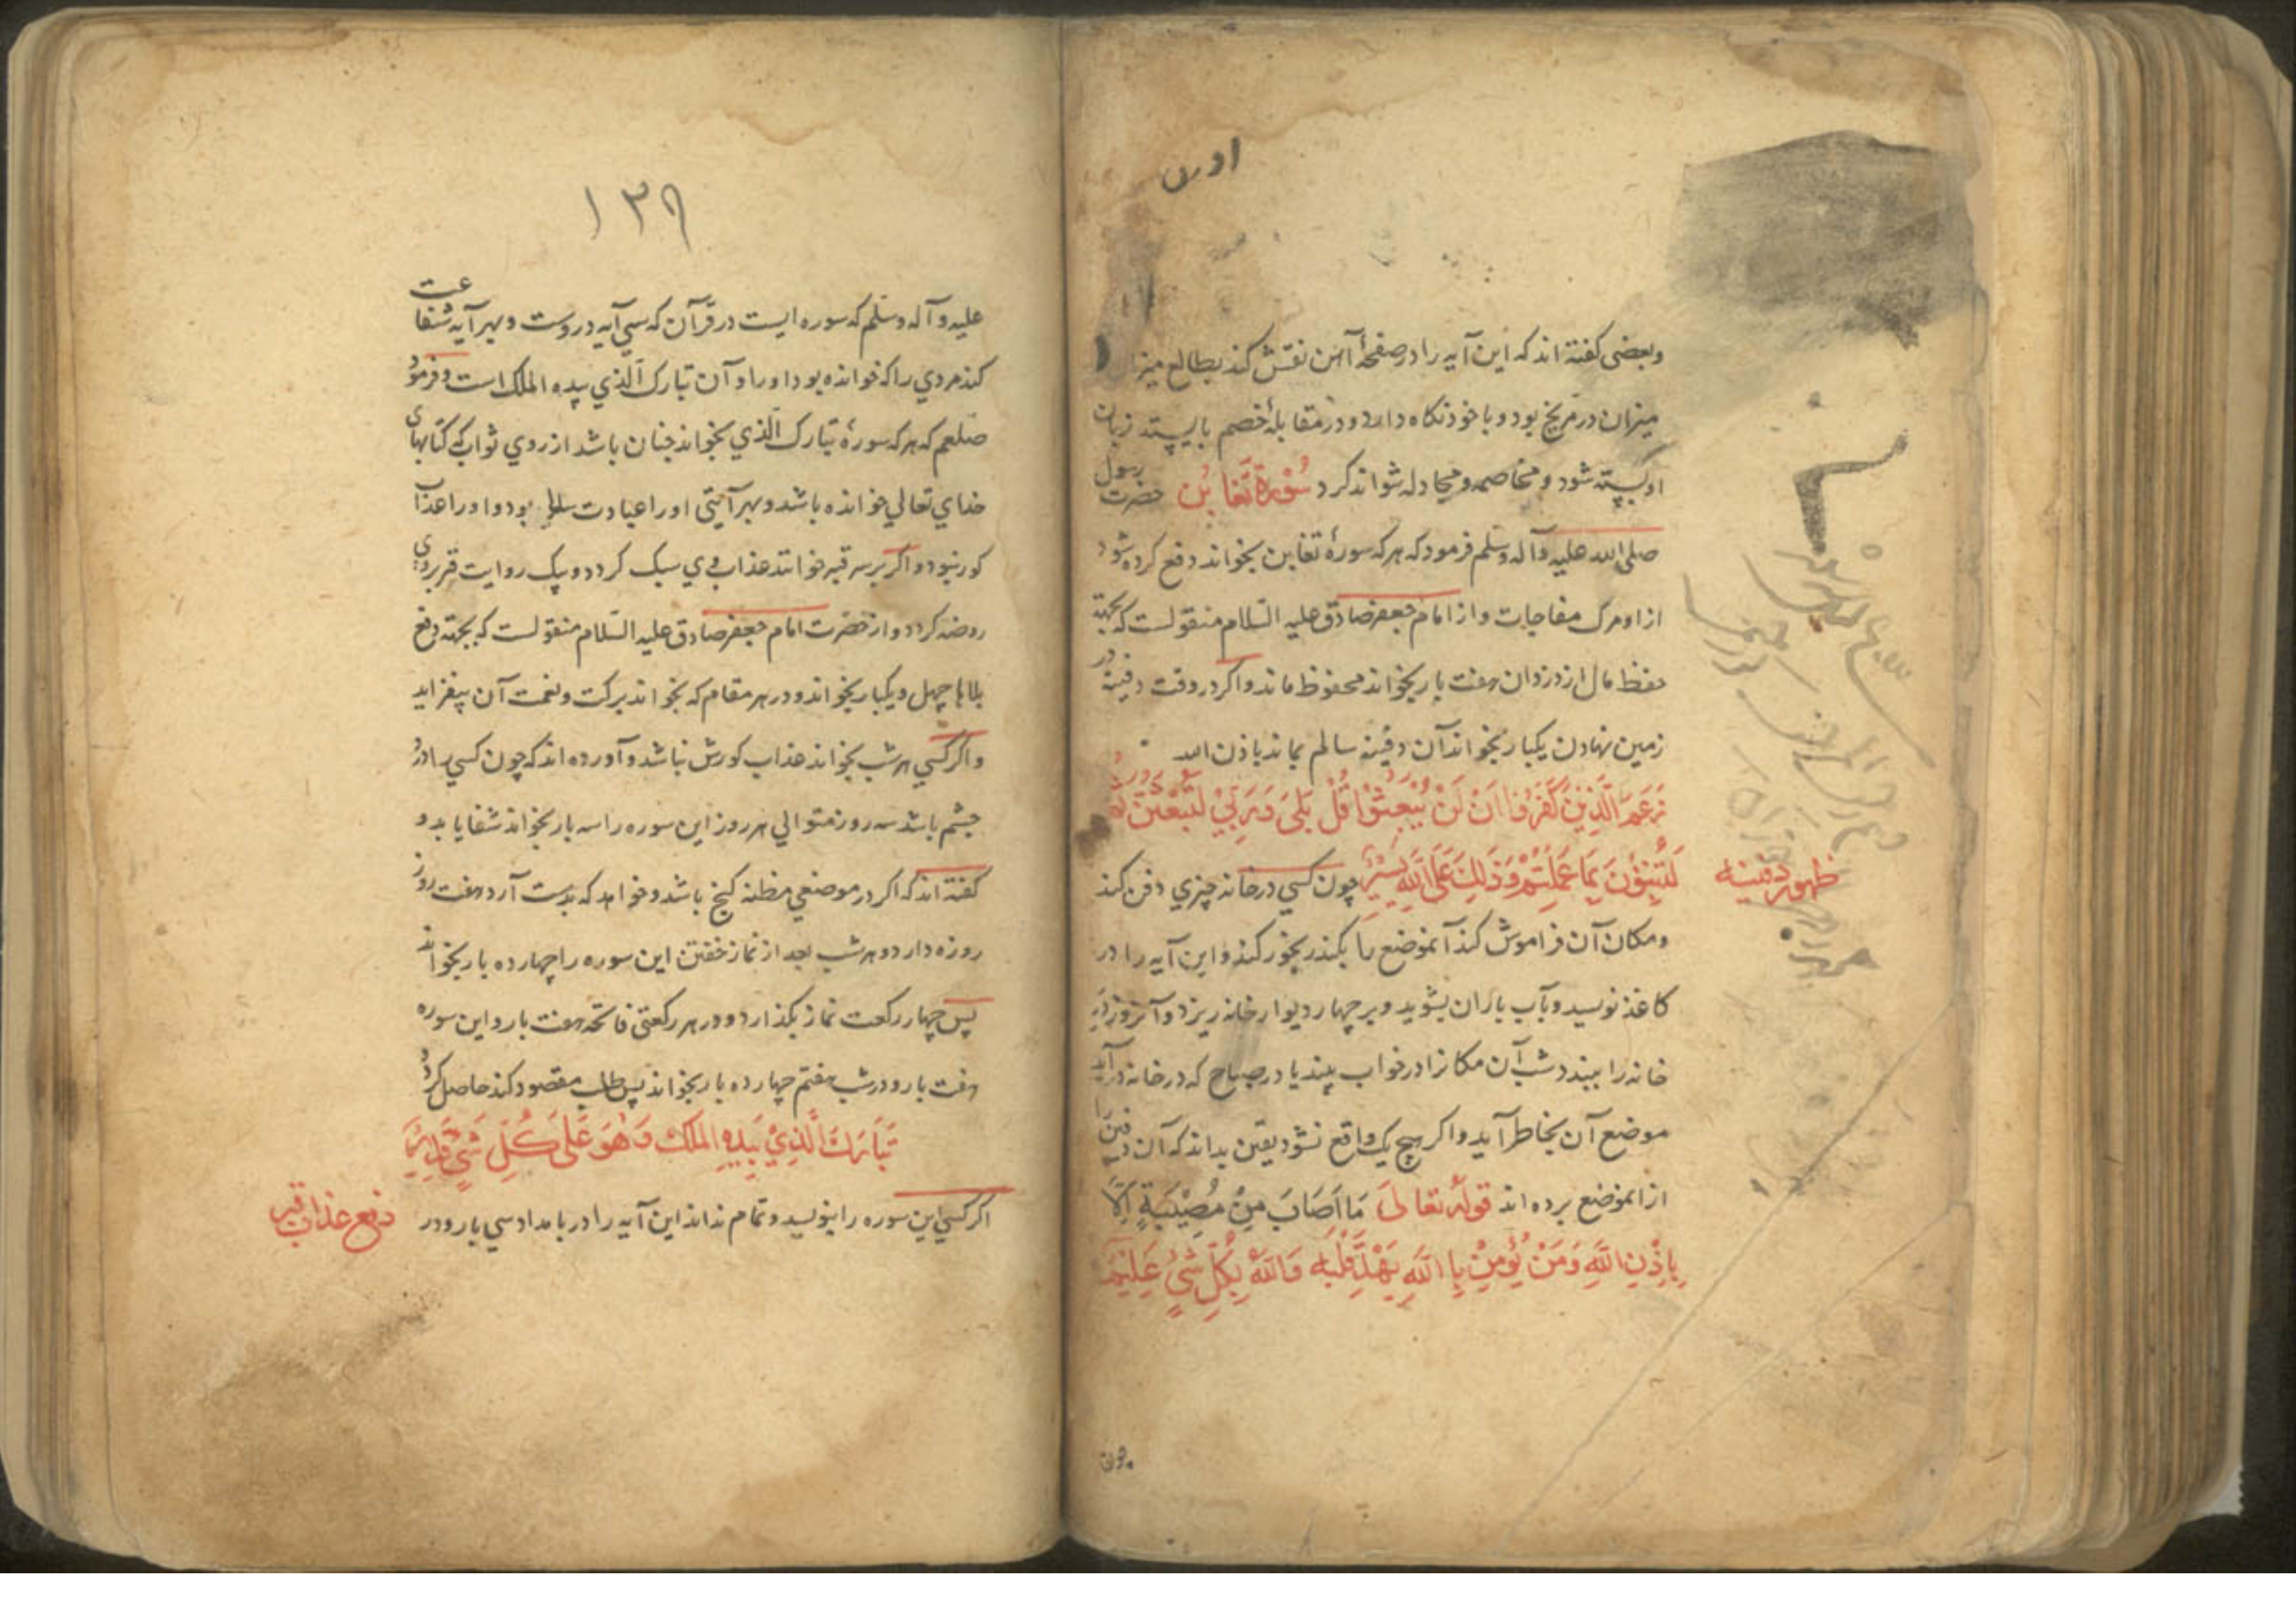 اورں
وبعضی کفته اند که این آیه را در صفحهٔ آهن نقش کند بطالع میزا
میزان در مریخ بود و با خود نکاه دارد و در مقابلهٔ خصم باریسته زبان
او بسته شود و مخاصمه و مجادله نتواند کرد سُوْرَة تَغَابُن حضرت رسول
صلی الله علیه وآله وسلم فرمود که هر که سورهٔ تغابن بخواند دفع کرده شود
از او مرک مفاجات و از امام جعفر صادق علیه السّلام منقولست که بجهة
حفظ مال از دزدان هفت بار بخواند محفوظ ماند و اکر در وقت دفینه در
زمین نهادن یکبار بخواند آن دفینه سالم بماند باذن الله
زَعَمَ الَّذِيْنَ كَفَرُوْا اَنْ لَنْ يُبْعَثُوْا قُلْ بَلٰى وَرَبِّيْ لَتُبْعَثُنَّ ثُمَّ
لَتُنَبَّؤُنَّ بِمَا عَمِلْتُمْ وَذٰلِكَ عَلَى اللّٰهِ يَسِيْرٌ چون کسی در خانه چیزي دفن کند
ظهور دفینه
ومکان آن فراموش کند آنموضع را بکندر بخور کند و این آیه را در
کاغذ نویسد و بآب باران بشوید و بر چهار دیوار خانه ریزد و آنروز در
خانه را ببندد شب آن مکانرا در خواب بیند یا در صباح که در خانه در آید
موضع آن بخاطر آید و اکر هیچ یک واقع نشود یقین بداند که آن دفینه
از انموضع برده اند قولهُ تعالیٰ مَا اَصَابَ مِنْ مُصِيْبَةٍ اِلَّا
بِاِذْنِ اللّٰهِ وَمَنْ يُؤْمِنْ بِاللّٰهِ يَهْدِ قَلْبَهُ وَاللّٰهُ بِكُلِّ شَيْءٍ عَلِيْمٌ
١٣٩
علیه وآله وسلم که سوره ایست در قرآن که سی آیه دروست و بهر آیه شفاعت
کند مردي را که خوانده بود او را و آن تبارک الّذي بیده الملک است و فرمود
صلعم که هر که سورهٔ تبارک الّذي بخواند چنان باشد از روي ثواب که کتابهای
خداي تعالي خوانده باشد و بهر آیتی او را عبادت بود و او را عذاب
کور نبود و اکر بر سر قبر خوانند عذاب وي سبک کردد و بیک روایت قبر بروی
روضه کردد و از حضرت امام جعفر صادق علیه السّلام منقولست که بجهة دفع
بلاها چهل و یکبار بخواند و در هر مقام که بخواند برکت و نعمت آن بیفزاید
و اکر کسي هر شب بخواند عذاب کورش نباشد و آورده اند که چون کسي را درد
چشم باشد سه روز متوالي هر روز این سوره را سه بار بخواند شفا یابد و
کفته اند که اکر در موضعي مظنه کنج باشد و خواهد که بدست آرد هفت روز
روزه دارد و هر شب بعد از نماز خفتن این سوره را چهارده بار بخواند
پس چهار رکعت نماز بکذارد و در هر رکعتی فاتحه هفت بار و این سوره
هفت بار و در شب هفتم چهارده بار بخواند پس طلب مقصود کند حاصل کردد
تَبَارَكَ الَّذِيْ بِيَدِهِ الْمُلْكُ وَهُوَ عَلَى كُلِّ شَيْءٍ قَدِيْرٌ
اکر کسي این سوره را بنویسد و تمام نداند این آیه را در بامداد سي بار و در
دفع عذاب قبر